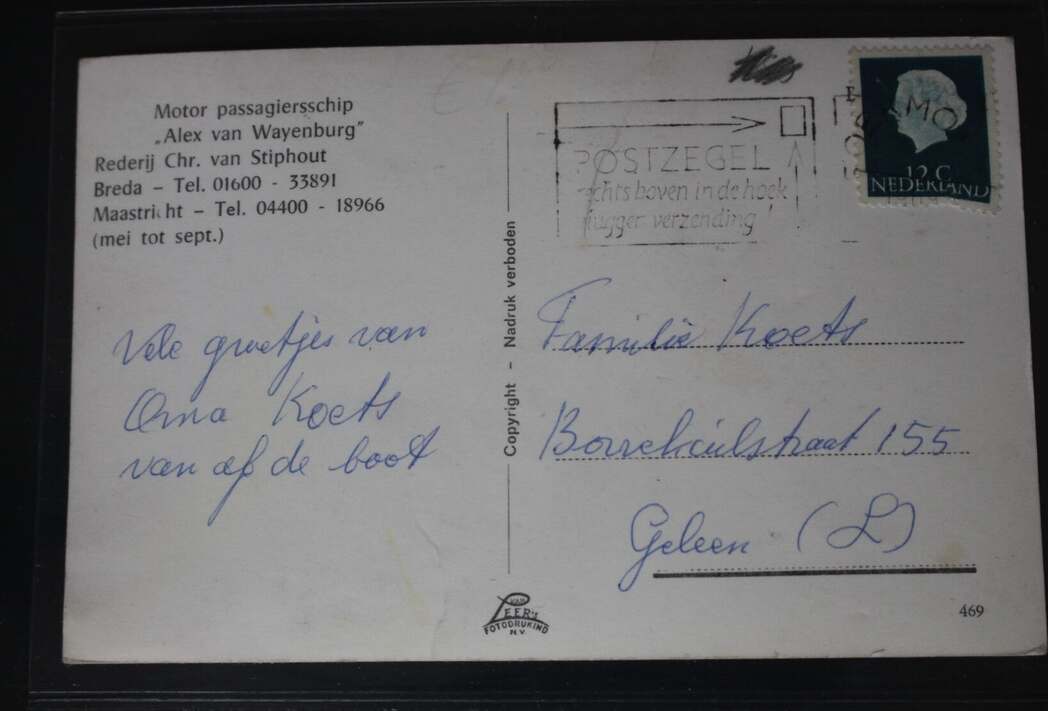 Motor passagiersschip
„Alex van Wayenburg"
Rederij Chr. van Stiphout
Breda – Tel. 01600 - 33891
Maastricht – Tel. 04400 - 18966
(mei tot sept.)
Vele groetjes van
Oma Koets
van af de boot
Copyright - Nadruk verboden
VAN
LEER's
FOTODRUKIND
N.V.
POSTZEGEL
rechts boven in de hoek
vlugger verzending
12 C
NEDERLAND
Familie Koets
155
Geleen (L)
469